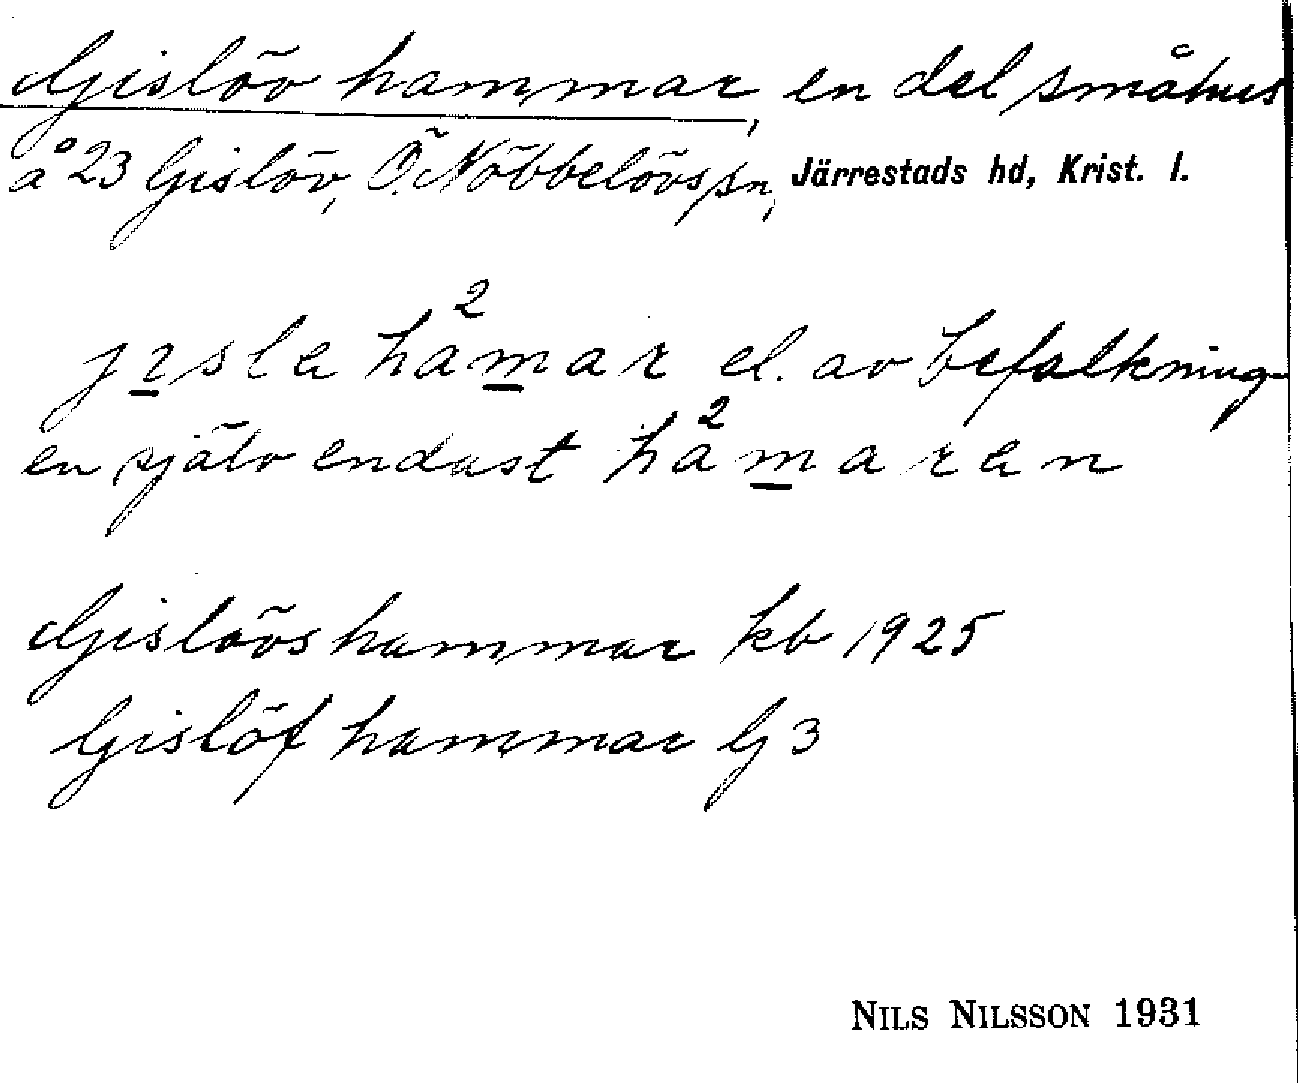 Gislöv hammar, en del småhus
å 23 Gislöv, Ö. Nöbbelövs sn, Järrestads hd, Krist. l.
jısla ha²mar el. av befolkning-
en själv endast ha²maran
Gislövshammar kb 1925
Gislöf hammar G 3
NILS NILSSON 1931